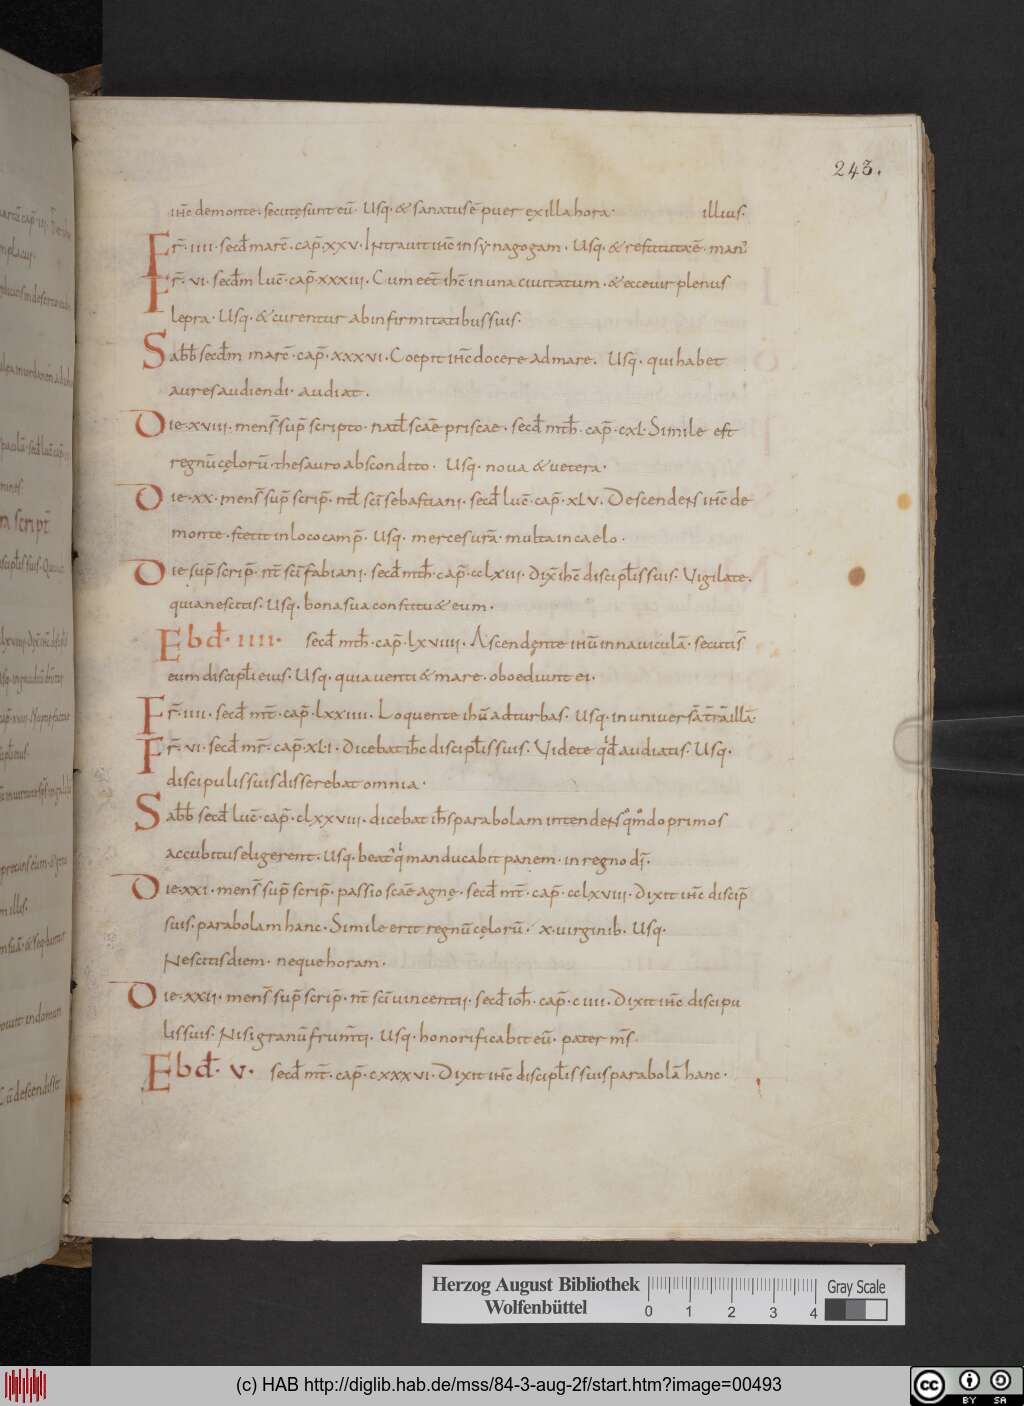 243.
ihc̄ demonte. secutęsunt eū. Usq. & sanatusē puer exillahora. illius.
Fr̄. iiii. secd̄ marc̄. cap̄. xxv. Intrauit ihc̄ in synagogam. Usq. & restitutaē. man.
Fr̄. vi. secdm̄ luc̄. cap̄. xxxiii. Cum eēt ihc̄ in una ciuitatum. & ecceuir plenus
lepra. Usq. & curentur abinfirmitatibus suis.
Sabb̄ secdm̄ marc̄. cap̄. xxxvi. Coepit ihc̄ docere admare. Usq. qui habet
aures audiendi. audiat.
Die. xviii. mens̄ sup̄ scripto. natl̄ scāe priscae. secd̄ mth̄. cap̄. cxl. Simile est
regnū cęlorū. thesauro abscondito. Usq. noua & uetera.
Die. xx. mens̄ sup̄ scrip̄. ntl̄ sc̄i sebastiani. secd̄ luc̄. cap̄. xlv. Descendens ihc̄ de
monte. stetit in loco camp̄. Usq. merces urā. multa in caelo.
Die sup̄ scrip̄. nt̄ sc̄i fabiani. secd̄ mth̄. cap̄. cclxiii. dix̄ ihc̄ discipl̄is suis. Vigilate.
quia nescitis. Usq. bona sua constitu& eum.
Ebd̄. iiii. secd̄ mth̄. cap̄. lxviiii. Ascendente ihū in nauiculā. secutis̄
eum discipl̄i eius. Usq. quia uenti & mare. oboediunt ei.
Fr̄. iiii. secd̄ mt̄. cap̄. lxxiiii. Loquente ihū adturbas. Usq. in uniuersā t̄rā illā.
Fr̄. vi. secd̄ mr̄. cap̄. xli. dicebat ihc̄ discipl̄is suis. Videte qd̄ audiatis. Usq.
discipulis suis disserebat omnia.
Sabb̄ secd̄ luc̄. cap̄. clxxviii. dicebat ihs̄ parabolam intendens qmdo primos
accubitus eligerent. Usq. beat' q manducabit panem. in regno dī.
Die. xxi. mens̄ sup̄ scrip̄. passio scāe agnę. secd̄ mt̄. cap̄. cclxviii. Dixit ihc̄ discip̄
suis. parabolam hanc. Simile erit regnū cęlorū. x. uirginib̄. Usq.
Nescitis diem. neque horam.
Die. xxii. mens̄ sup̄ scrip̄. nt̄ sc̄i uincentii. secd̄ ioh̄. cap̄. ciiii. Dixit ihc̄ discipu
lis suis. Nisi granū frum̄ti. Usq. honorificabit eū. pater m̄s.
Ebd̄. v. secd̄ mt̄. cap̄. cxxxvi. Dixit ihc̄ discipl̄is suis parabolā hanc.
Herzog August Bibliothek
Wolfenbüttel
0 1 2 3 4
Gray Scale
(c) HAB http://diglib.hab.de/mss/84-3-aug-2f/start.htm?image=00493
cc BY SA